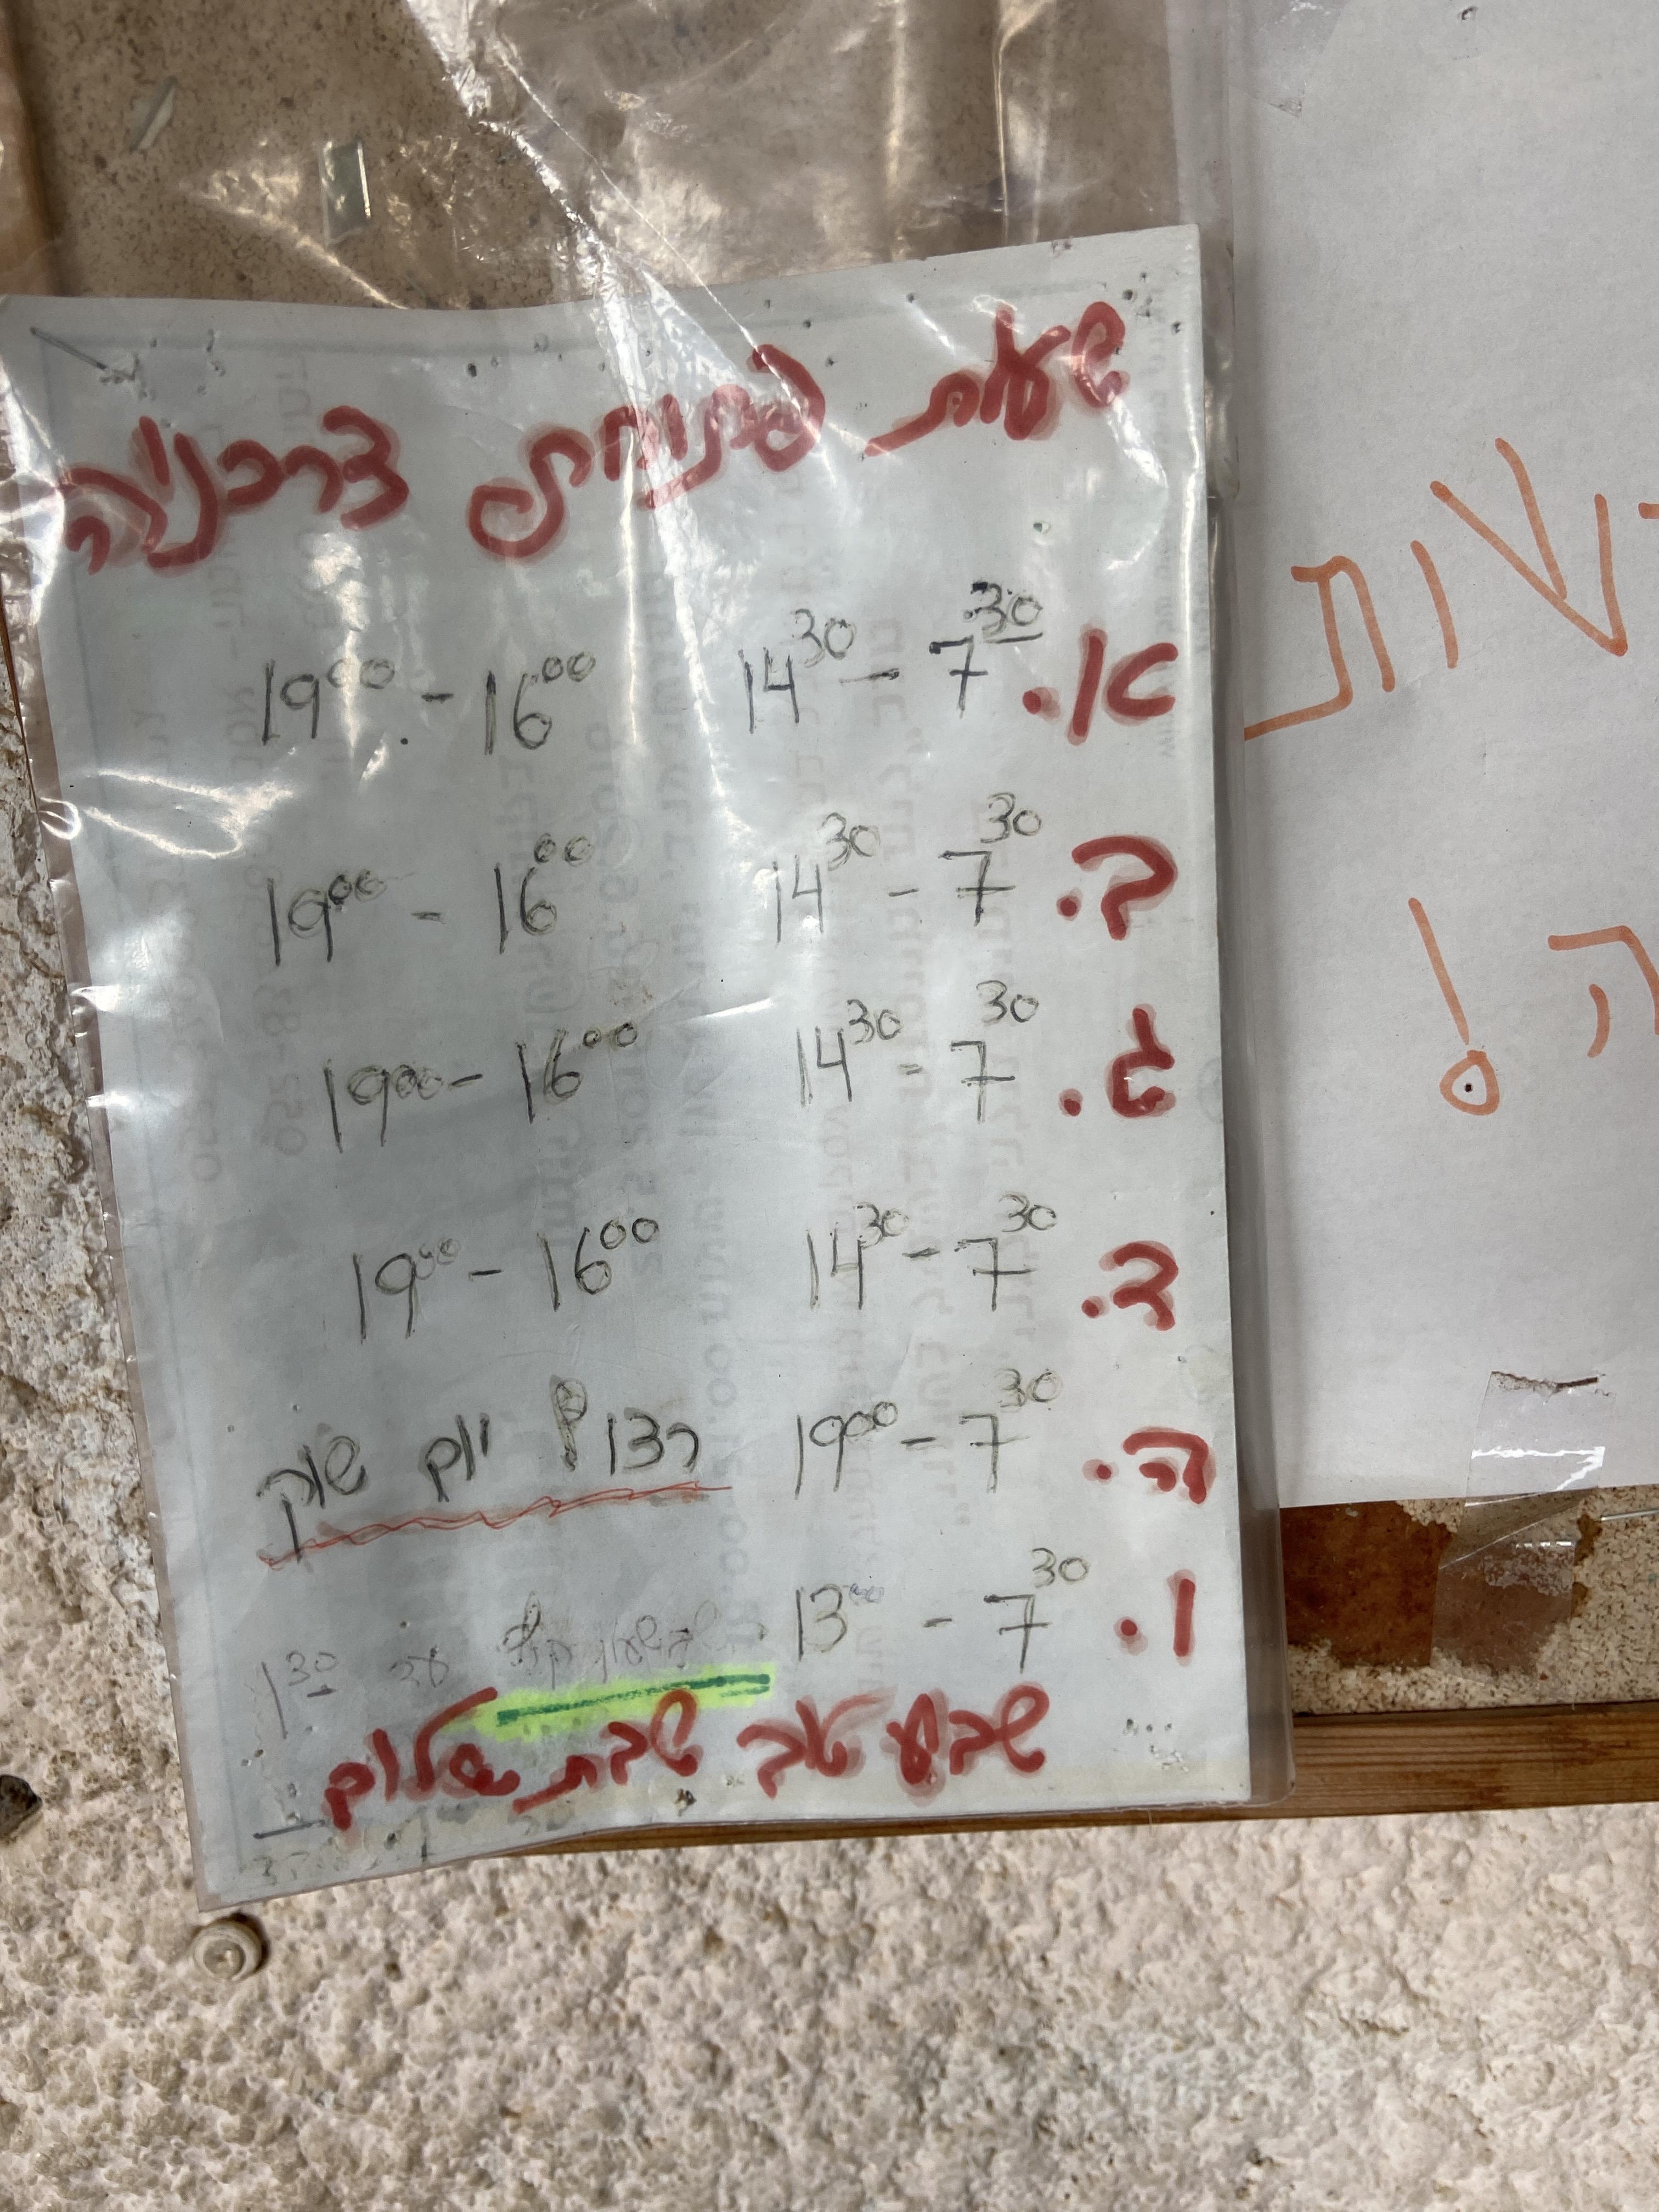 שעות פתיחת צרכניה
א. 7³⁰ - 14³⁰ 16⁰⁰ - 19⁰⁰
ב. 7³⁰ - 14³⁰ 16⁰⁰ - 19⁰⁰
ג. 7³⁰ - 14³⁰ 16⁰⁰ - 19⁰⁰
ד. 7³⁰ - 14³⁰ 16⁰⁰ - 19⁰⁰
ה. 7³⁰ - 19⁰⁰ רצוף יום שוק
ו. 7³⁰ - 13⁰⁰ בשעון קיץ עד 1³⁰
שבוע טוב שבת שלום
שות
ה!